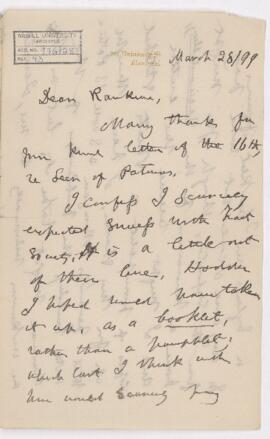 McGILL UNIVERSITY
ARCHIVES
ACC. NO.
REF. 43
University St
Montreal.
March 28/99
Dear Rankine,
Many thanks for
your kind letter of the 16th,
re Seer of Patmos.
I confess I scarcely
expected success with that
Society, it is a little out
of their line. Hodder
I hoped would have taken
it up, as a booklet,
rather than a pamphlet;
which last I think with
him would scarcely pay